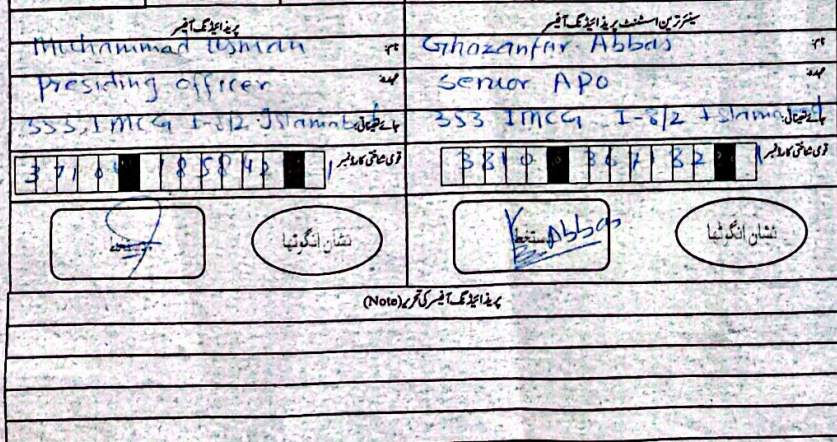 سینئر ترین اسسٹنٹ پریذائیڈنگ آفیسر
نام Ghazanfar Abbas
عہدہ Senior APO
جائے تعیناتی 353 IMCG I-8/2 Islamabad
قومی شناختی کارڈ نمبر
نشان انگوٹھا
دستخط Abbas
پریذائیڈنگ آفیسر
نام Muhammad Usman
عہدہ Presiding Officer
جائے تعیناتی 353, IMCG I-8/2 Islamabad
قومی شناختی کارڈ نمبر
نشان انگوٹھا
دستخط
پریذائیڈنگ آفیسر کی تحریر (Note)